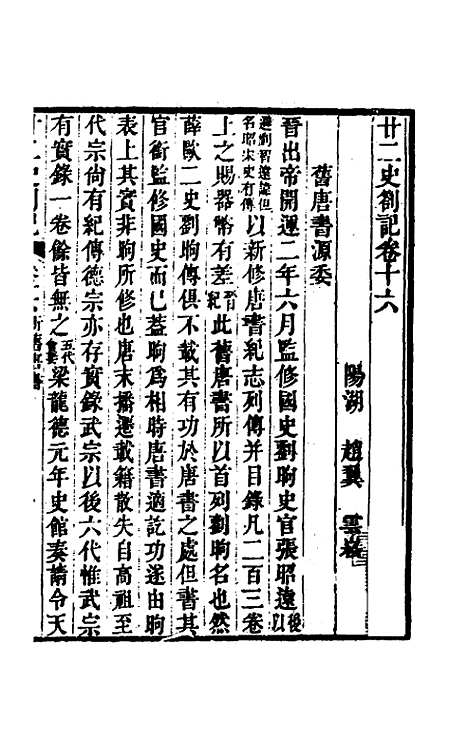 廿二史劄記卷十六
陽湖 趙翼 雲崧
舊唐書源委
晉出帝開運二年六月監修國史劉昫史官張昭遠後以
避劉智遠諱但名昭宋史有傳以新修唐書紀志列傳并目錄凡二百三卷
上之賜器幣有差晉紀此舊唐書所以首列劉昫名也然
薛歐二史劉昫傳俱不載其有功於唐書之處但書其
官銜監修國史而已蓋昫為相時唐書適訖功遂由昫
表上其實非昫所修也唐末播遷載籍散失自高祖至
代宗尚有紀傳德宗亦存實錄武宗以後六代惟武宗
有實錄一卷餘皆無之五代會要梁龍德元年史館奏請令天